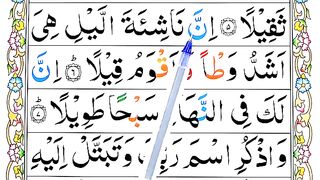 ثَقِيْلًا ۝۵ اِنَّ نَاشِئَةَ الَّيْلِ هِىَ
اَشَدُّ وَطْاً وَّاَقْوَمُ قِيْلًا ۝۶ اِنَّ
لَكَ فِى النَّهَارِ سَبْحًا طَوِيْلًا ۝۷
وَاذْكُرِ اسْمَ رَبِّكَ وَتَبَتَّلْ اِلَيْهِ